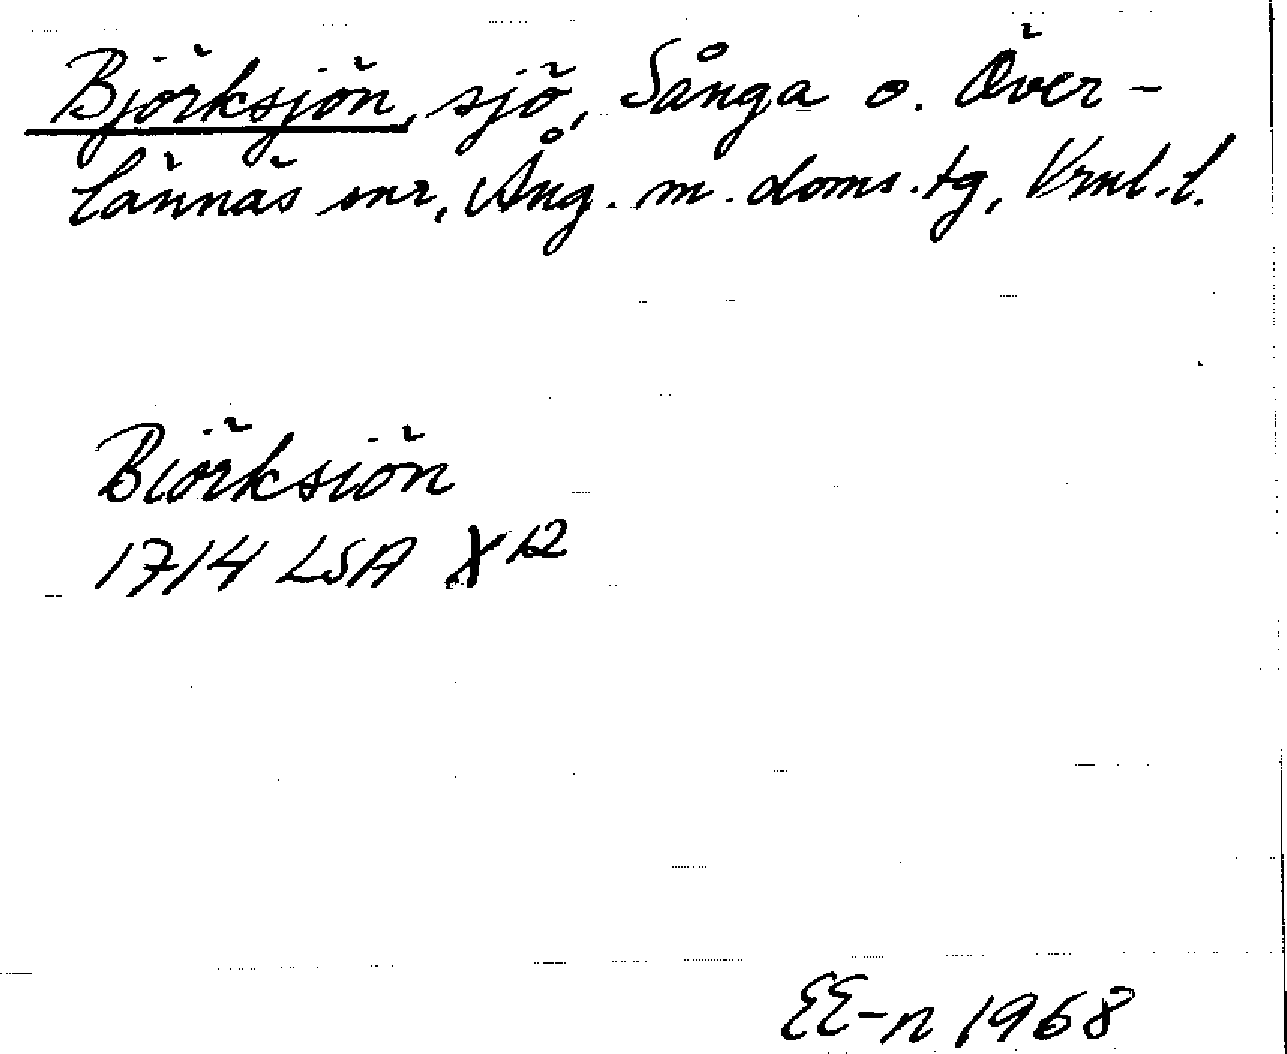 Björksjön, sjö, Sånga o. Över-
lännäs snr, Ång. m. doms.tg, Vrnl.l.
Biörksiön
1714 LSA X 12
EE-n 1968